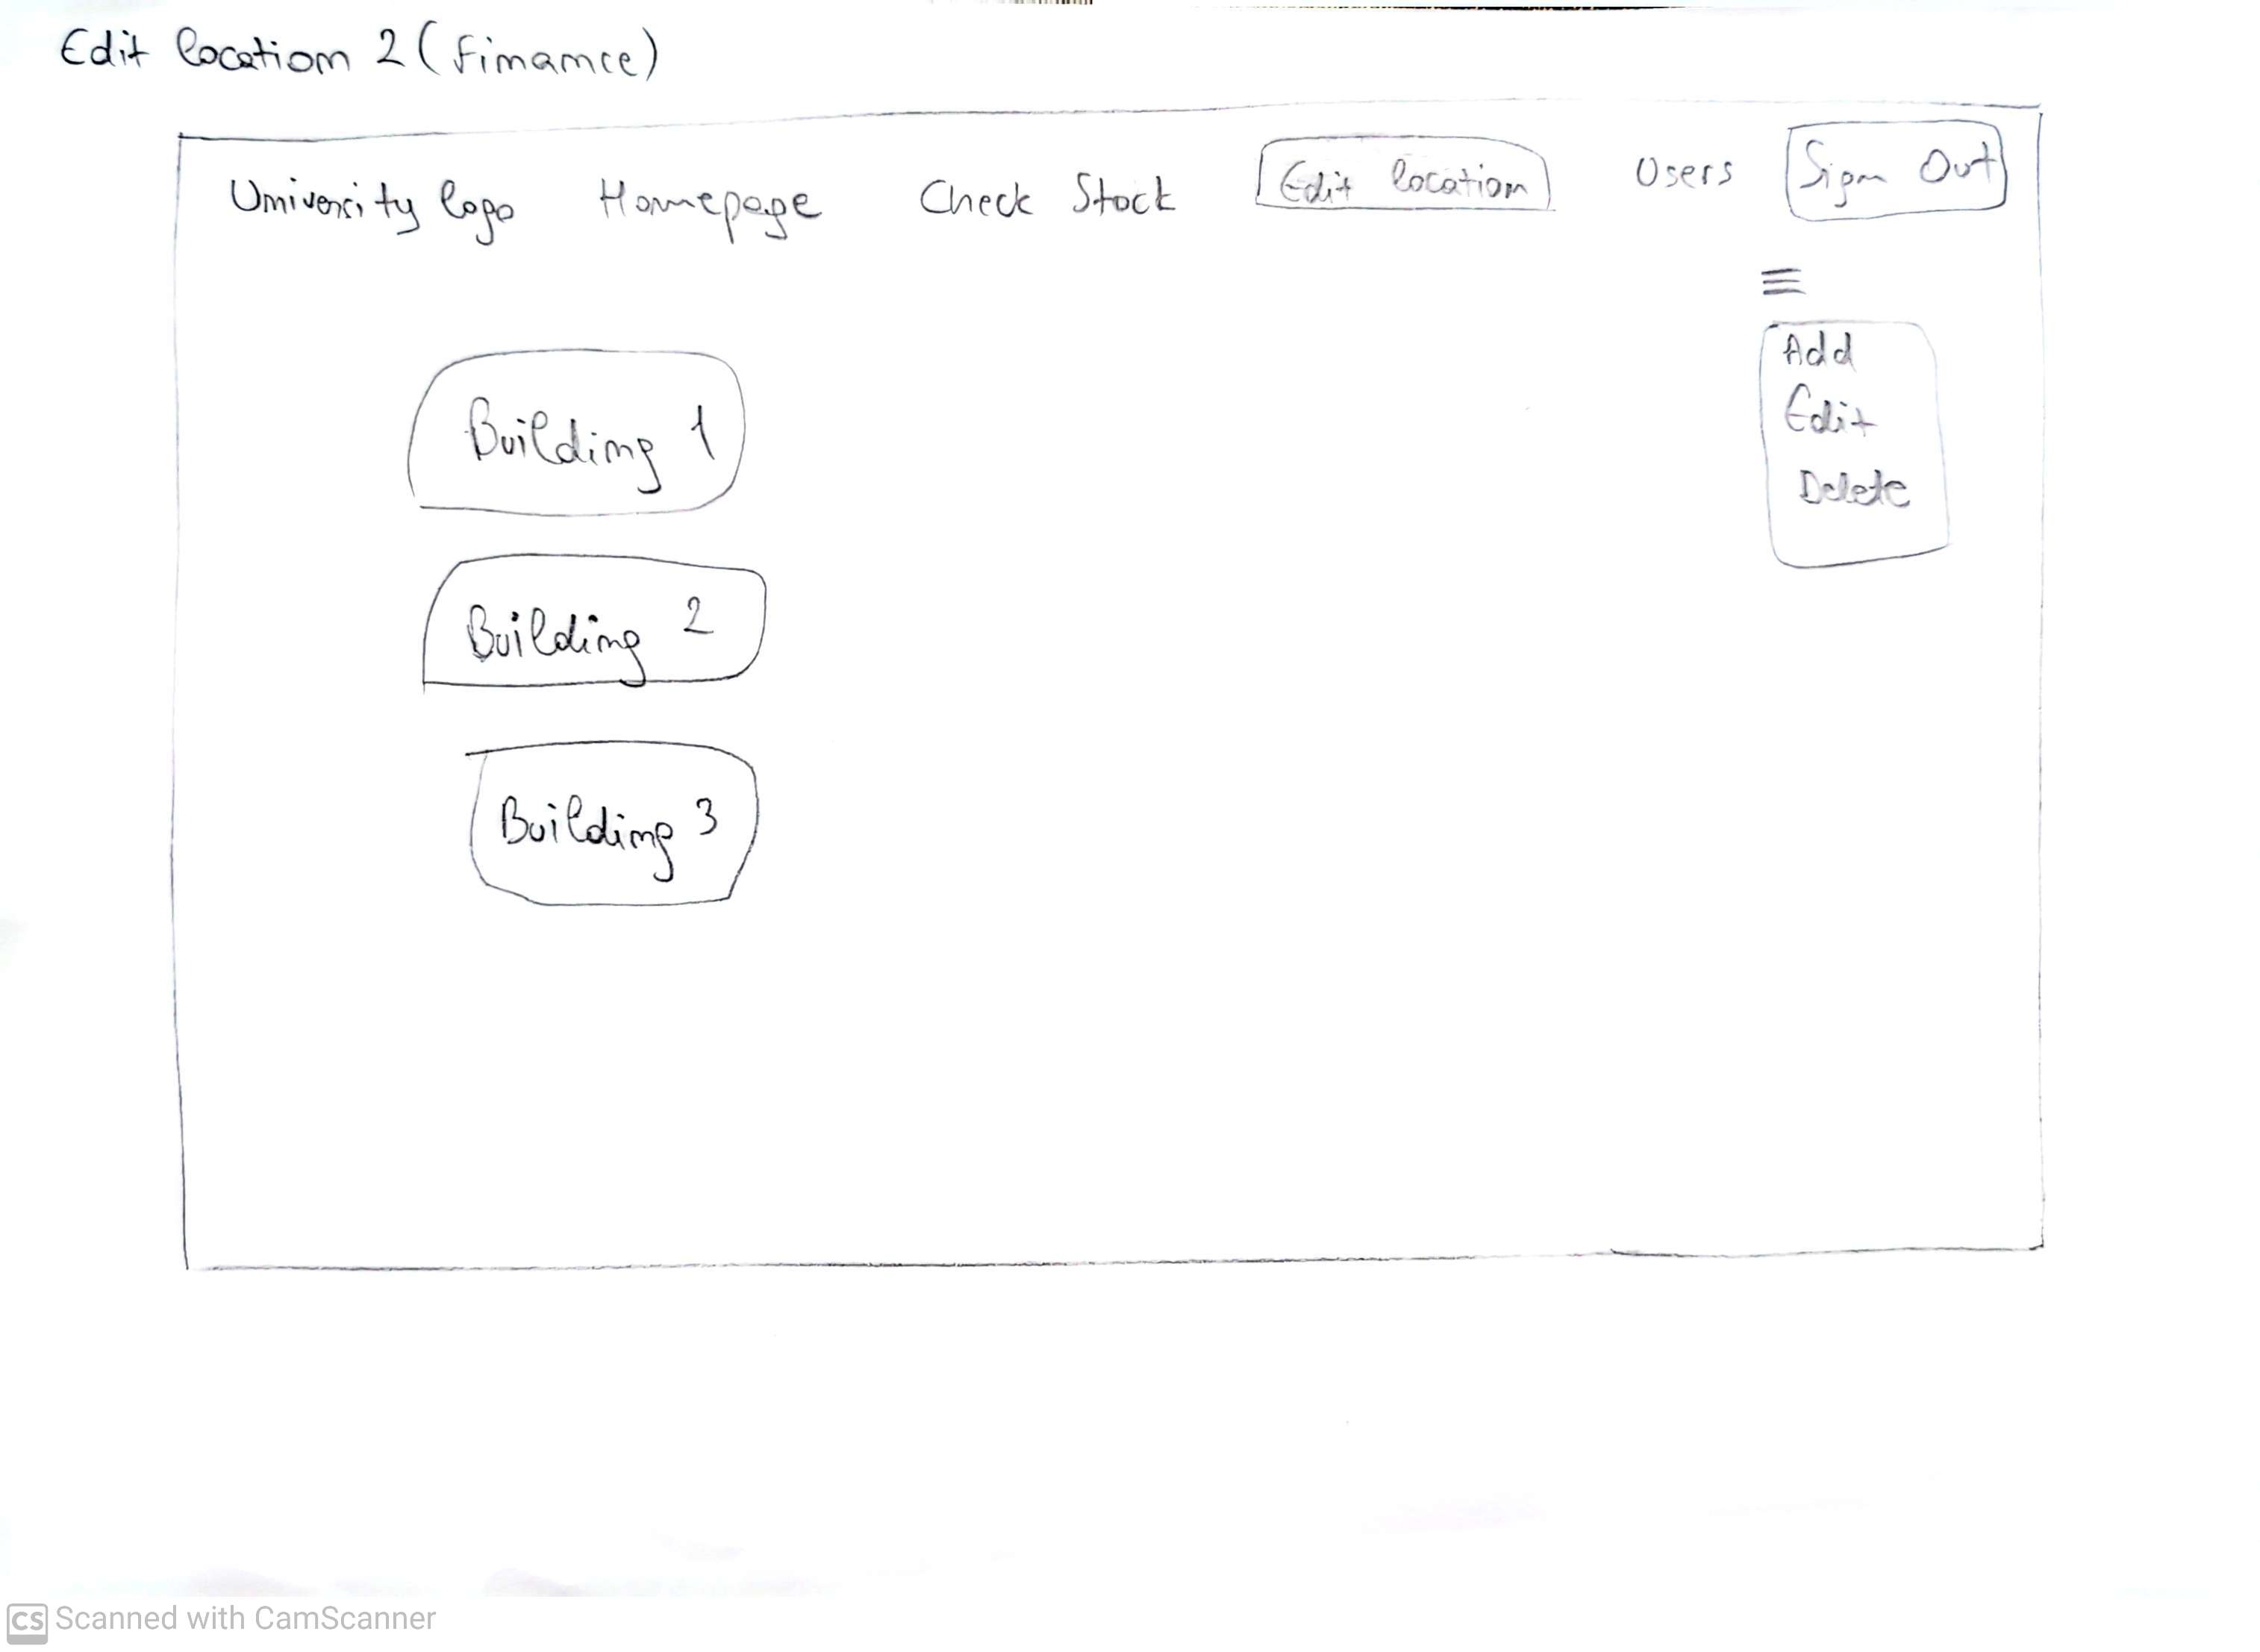 Edit location 2 (Finance)
University logo Homepage Check Stock Edit location Users Sign Out
Add
Edit
Delete
Building 1
Building 2
Building 3
CS Scanned with CamScanner